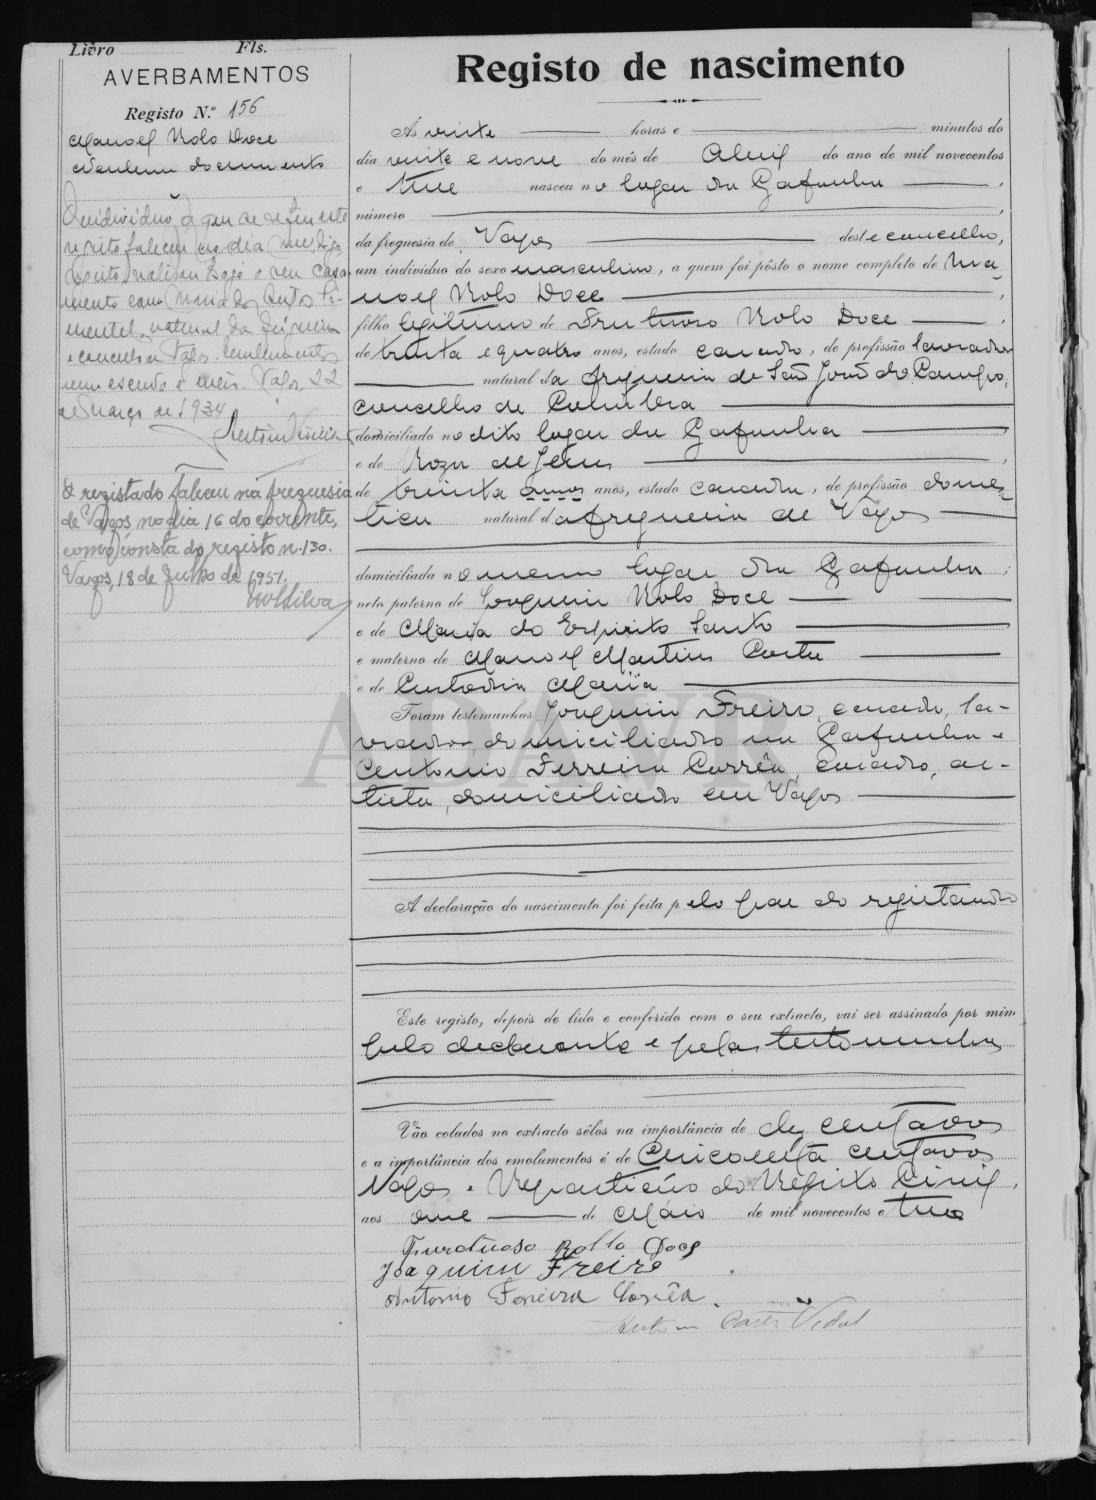 Livro Fls.
AVERBAMENTOS
Registo N.º 156
Manoel Rolo Doce
documento
O individuo a que se refere este
registo no dia digo,
registo realisou hoje o seu casa-
mento com dos Santos Pi-
mentel, natural da freguesia
e concelho Vagos. Emolumentos
um escudo e meio. Vagos, 22
de Março de 1934
O registado faleceu na freguesia
de Vagos no dia 16 do corrente,
como consta do registo n. 130.
Vagos, 18 de Julho de 1951.
Silva
Registo de nascimento
Ás vinte horas e minutos do
dia vinte e nove do mês de Abril do ano de mil novecentos
e treze nasceu no lugar da Gafanha,
número
da freguesia de Vagos deste concelho,
um individuo do sexo masculino, a quem foi pôsto o nome completo de Ma-
noel Rolo Doce
filho legitimo de Frutuoso Rolo Doce
de trinta e quatro anos, estado casado, de profissão lavrador
natural da freguesia de São João do Campo,
concelho de Coimbra
domiciliado no dito lugar da Gafanha
e de Roza de Jesus
de trinta annos anos, estado casada, de profissão domes-
tica natural da freguesia de Vagos
domiciliada no mesmo lugar da Gafanha,
neto paterno de Joaquim Rolo Doce
e de Maria do Espirito Santo
e materno de Manoel Martins Costa
e de Custodia Maria
Foram testemunhas Joaquim Freire, casado, la-
vrador domiciliado na Gafanha e
Antonio Ferreira Corrêa, casado, ar-
tista, domiciliado em Vagos
A declaração do nascimento foi feita pelo pae do registando
Este registo, depois de lido e conferido com o seu extracto, vai ser assinado por mim
pelo declarante e pelas testemunhas
Vão colados no extracto sêlos na importância de dez centavos
e a importância dos emolumentos é de cincoenta centavos
Vagos e Repartição do Registo Civil,
aos onze de Maio de mil novecentos e treze
Furctuoso Rollo Doce
Joaquim Freire
Antonio Ferreira Corrêa.
Vidal
ADAVR